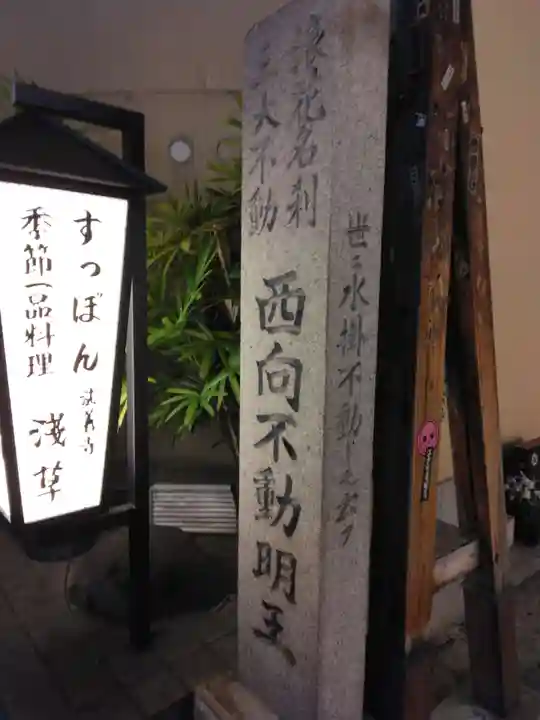 浪花名刹
三大不動
西向不動明王
世ニ水掛不動トモ云フ
すっぽん
季節一品料理
淺草